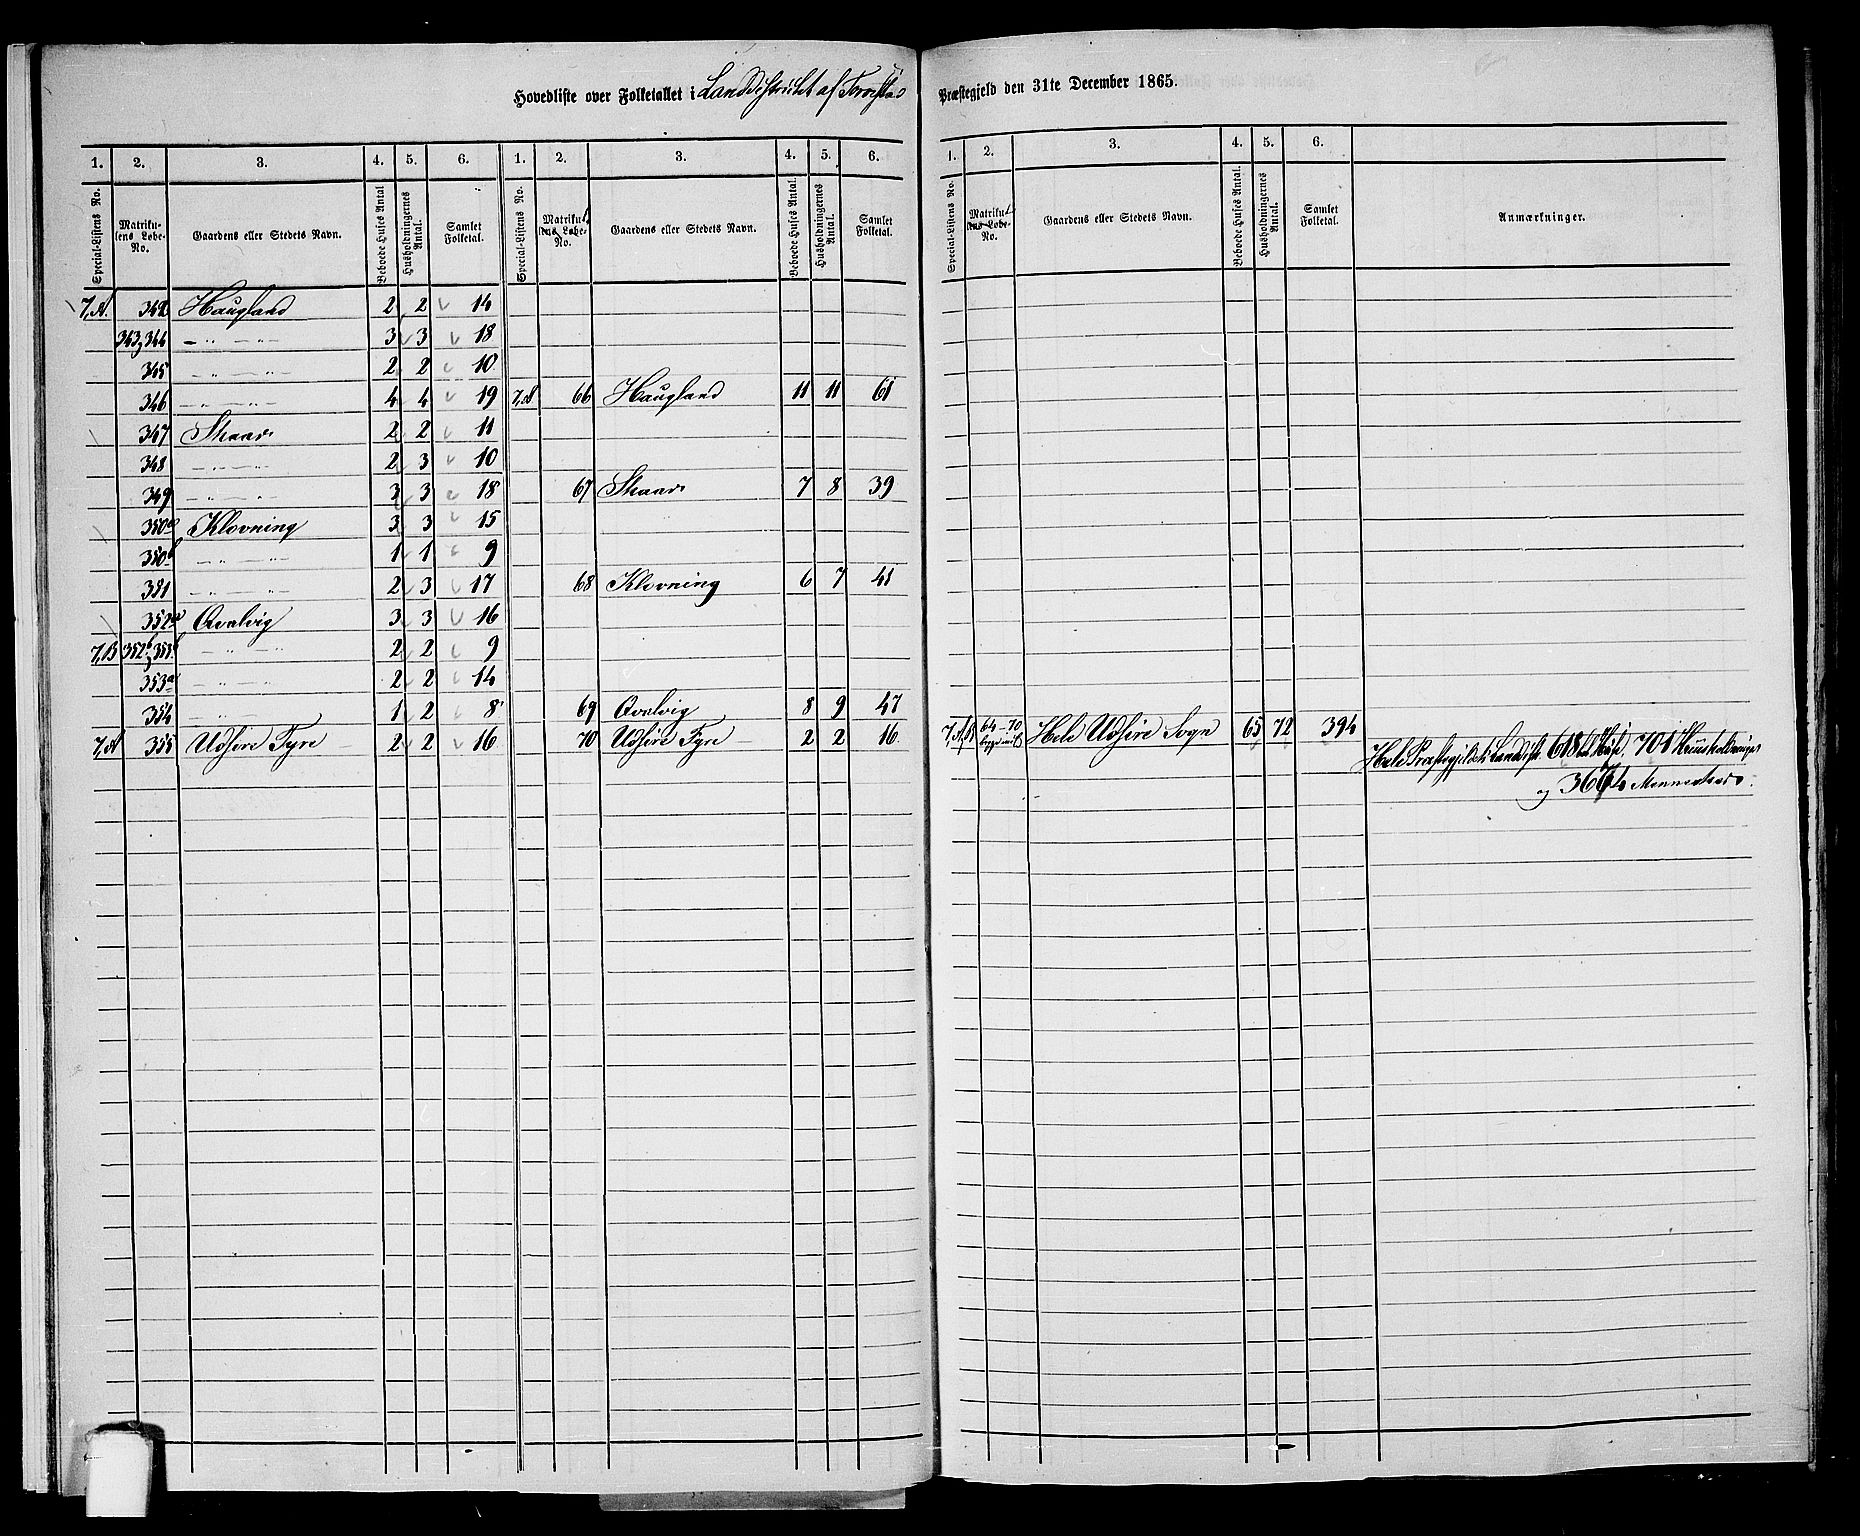 Hovedliste over Folketallet i Landdistrictet af Torvestad Præstegjeld den 31te December 1865.
1. 2. 3. 4. 5. 6. 1. 2. 3. 4. 5. 6. 1. 2. 3. 4. 5. 6.
Special-Listens No. Matrikulens Løbe-No. Gaardens eller Stedets Navn. Beboede Huses Antal Husholdningernes Antal. Samlet Folketal. Special-Listens No. Matrikulens Løbe-No. Gaardens eller Stedets Navn. Beboede Huses Antal. Husholdningernes Antal. Samlet Folketal. Special-Listens No. Matrikulens Løbe-No. Gaardens eller Stedets Navn. Beboede Huses Antal. Husholdningernes Antal. Samlet Folketal. Anmærkninger.
7,A. 342 Haugland 2 2 14
343,344 - " - " - 3 3 18
345 - " - " - 2 2 10
346 - " - " - 4 4 19 7,A 66 Haugland 11 11 61
347 Skaar 2 2 11
348 - " - " - 2 3 10
349 - " - " - 3 3 18 67 Skaar 7 8 39
350a Klovning 3 3 15
350b - " - " - 1 1 9
351 - " - " - 2 3 17 68 Klovning 6 7 41
352a Qvalvig 3 3 16
7,B 352b, 353b - " - " - 2 2 9
353a - " - " - 2 2 14
354 - " - 1 2 8 69 Qvalvig 8 9 47
7,A 355 Udsire Fyre 2 2 16 70 Udsire Fyre 2 2 16 7,A,B 64-70 Hele Udsire Sogn 65 72 394
Hele Præstegjeldets Landdist. 618 Huse, 701 Huusholdninger
og 3674 Mennesker.